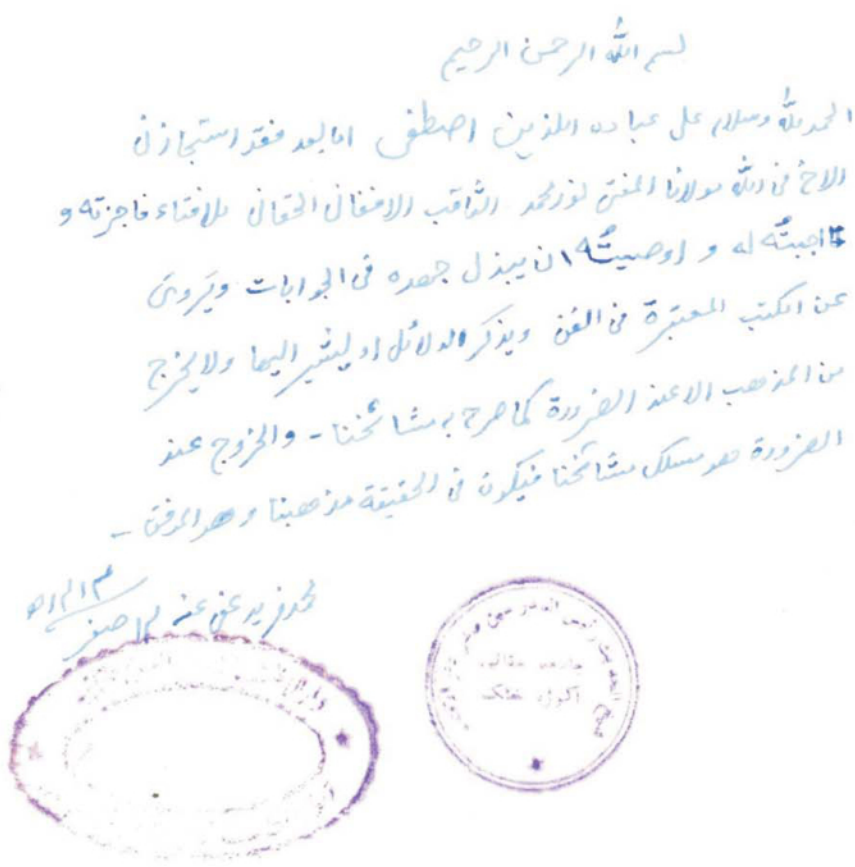 بسم الله الرحمن الرحيم
الحمد لله وسلام على عباده الذين اصطفى اما بعد فقد استجازنى
الاخ فى الله مولانا المفتى نور محمد الثاقب الافغانى الحقانى للافتاء فاجزته و
اجبتُه له و اوصيتُه ان يبذل جهده فى الجوابات ويَروى
عن الكتب المعتبرة فى الفن ويذكر الدلائل او يشير اليها ولا يخرج
من المذهب الا عند الضرورة كما صرح به مشائخنا - والخروج عند
الضرورة هو مسلك مشائخنا فيكون فى الحقيقة مذهبنا و هو الموفق -
محمد فريد عفى عنه صفر
جامعه حقانيه
اكوڑه خٹک